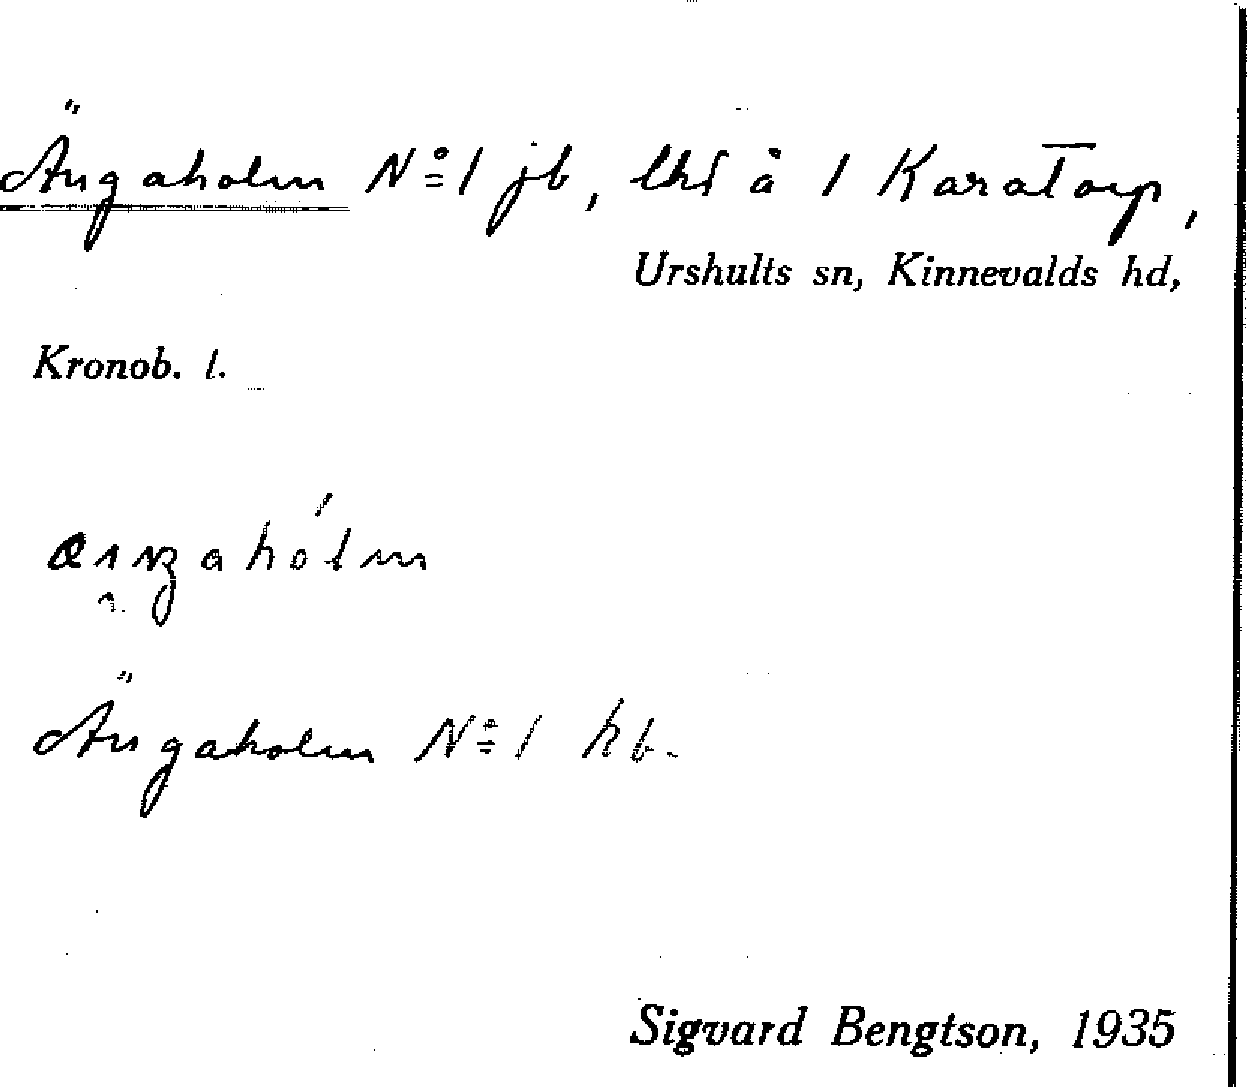 Ängaholm No 1 jb, lht å 1 Karatorp,
Urshults sn, Kinnevalds hd,
Kronob. l.
Ängaholm No 1 hb.
Sigvard Bengtson, 1935